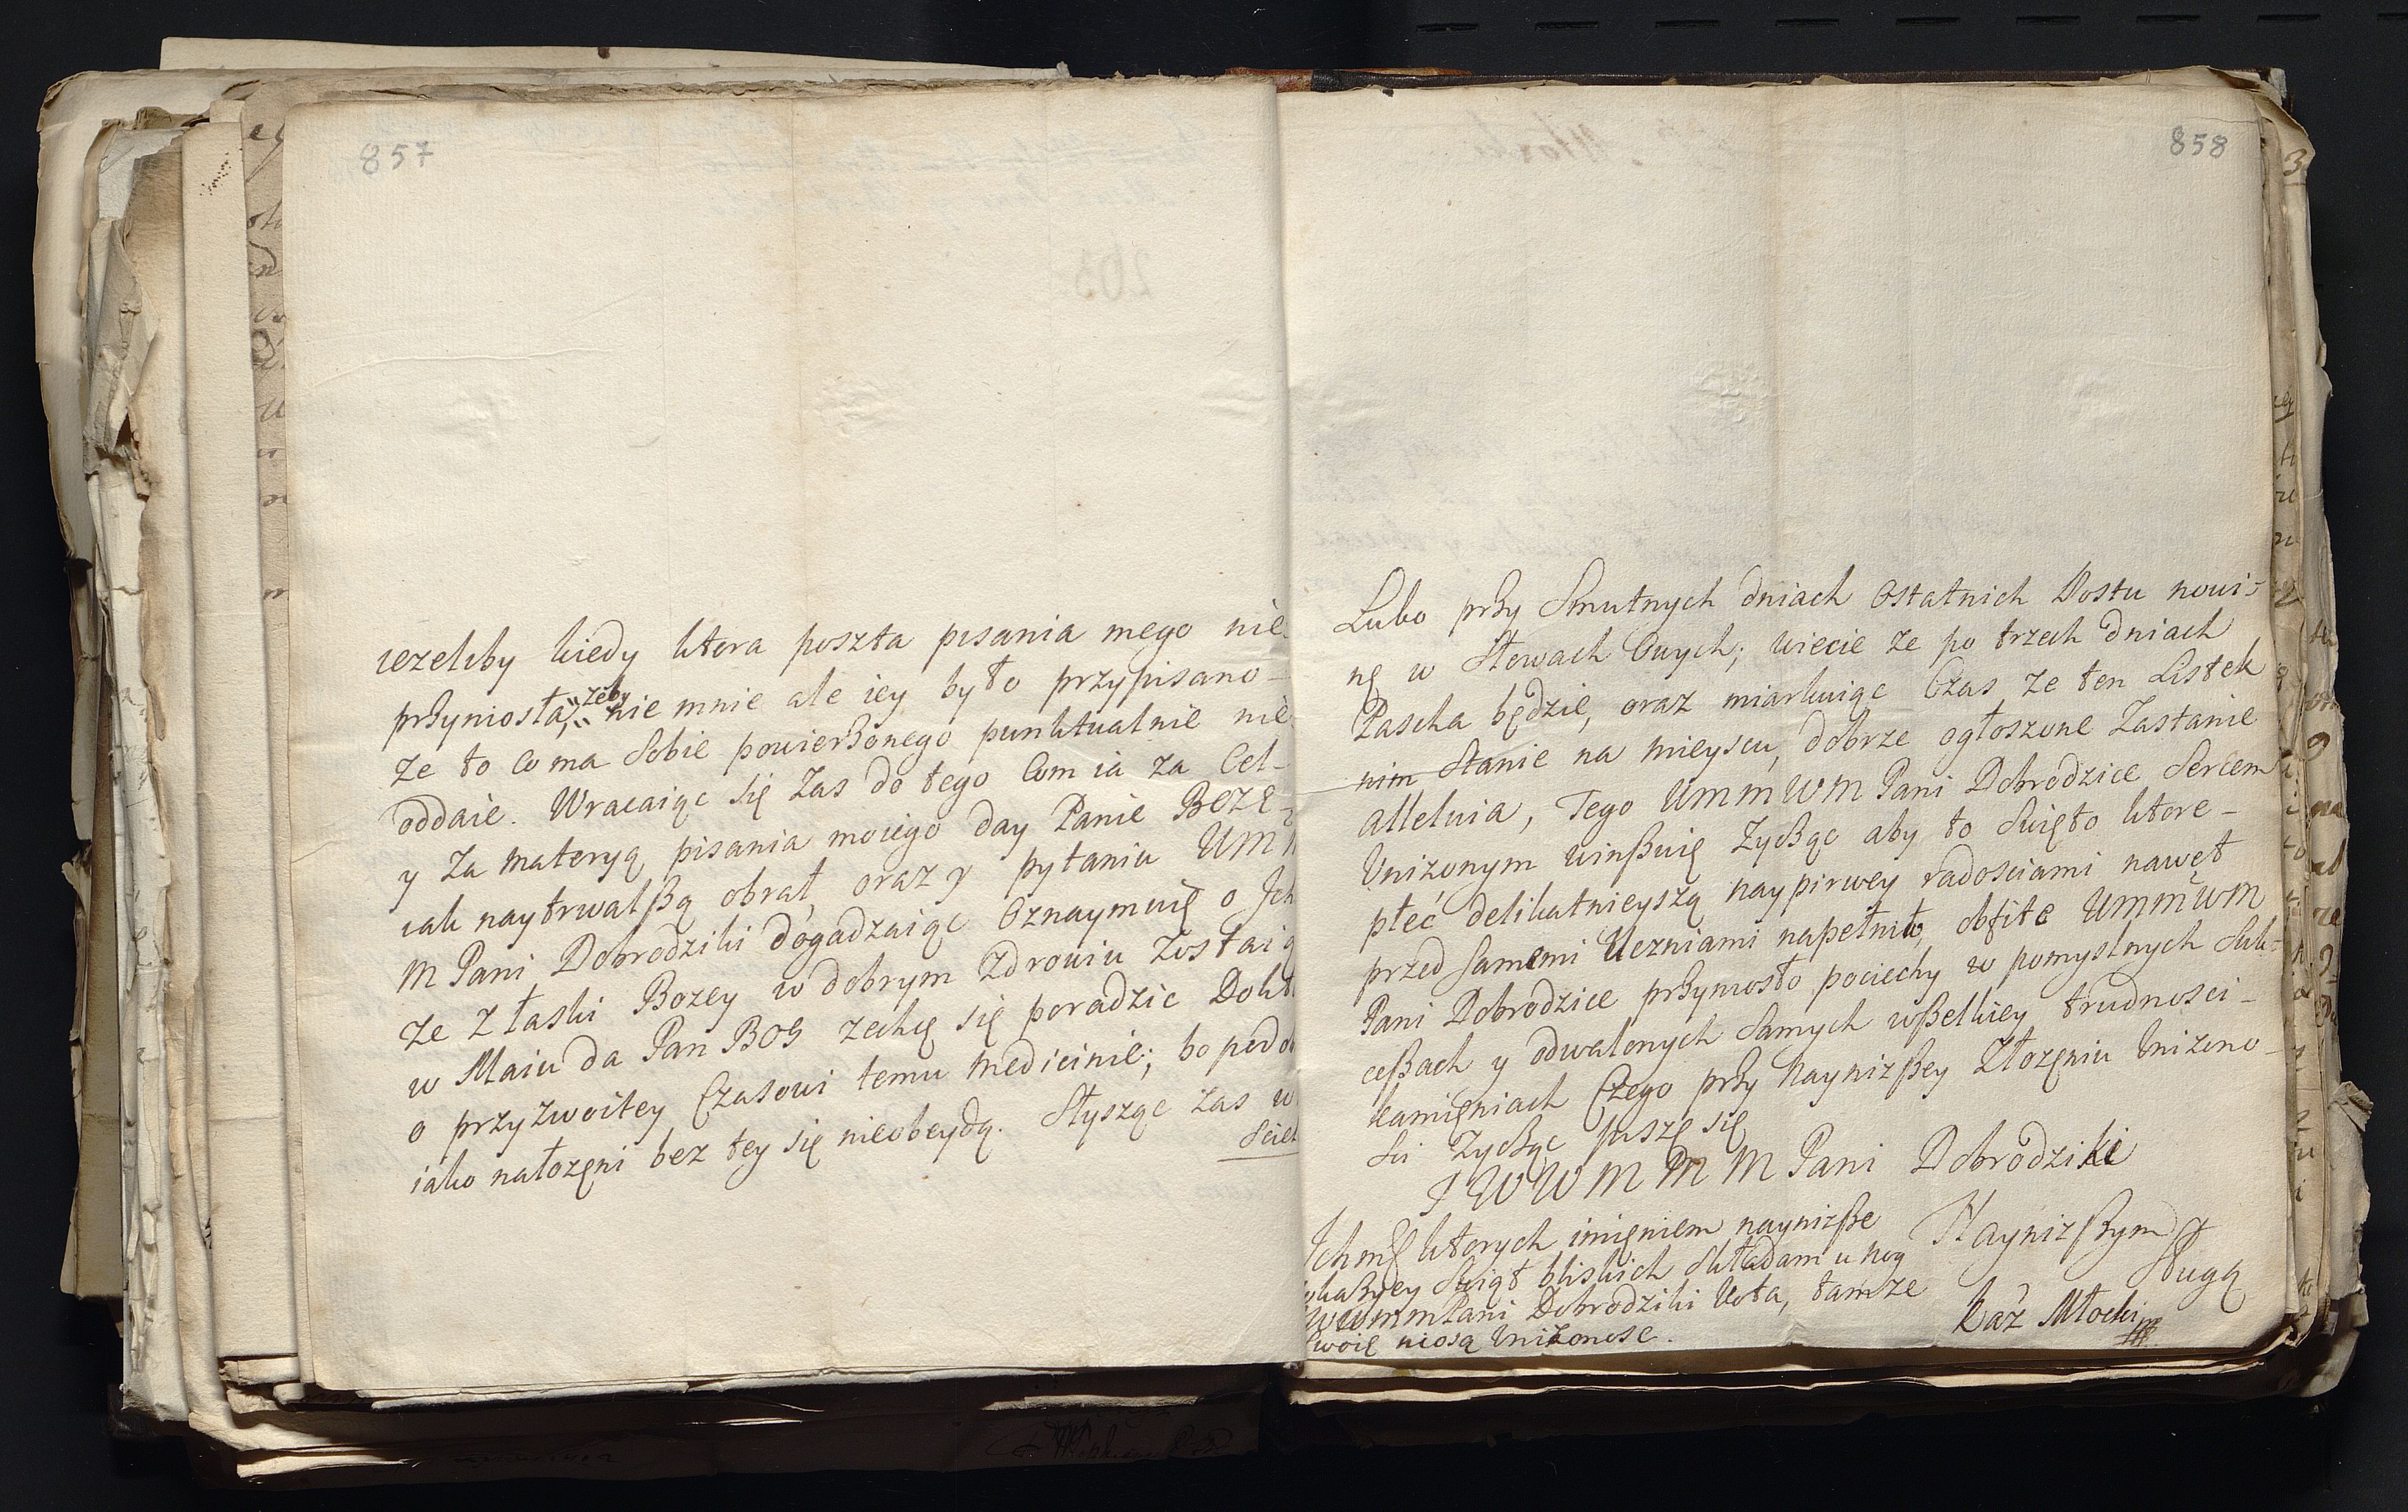 857
iezeliby kiedy ktora poszta pisania mego nie
przyniosła, żeby nie mnie ale iey było przypisano
Ze to Co ma Sobie powierßonego punktualnie nie
oddaie. Wracaiąc się Zas do tego Com ia za Cel
y Za materyą pisania moiego day Panie BOZE
iak naytrwalßą obrał, oraz y pytaniu UMM
M Pani Dobrodziki dogadzaiąc Oznaymuię o Ich
Ze Z łaski Bozey w dobrym Zdrowiu Zostaią
w Maiu da Pan BOG zechcę się poradzic Dokt
o przyzwoitey Czasowi temu medicinie; bo podo
iako nałozęni bez tey się nieobeydą. Słysząc Zas w
Sciel
858
Lubo przy Smutnych dniach Ostatnich Postu nowi=
nę w Słowach Owych; wiecie Ze po trzech dniach
Pascha będzie, oraz miarkuiąc Czas Ze ten Listek
nim Stanie na mieyscu, dobrze ogłoszone Zastanie
alleluia, Tego UMMWM Pani Dobrodzice Sercem
Unizonym winßuię Zycząc aby to Swięto ktore
płeć delikatnieyszą naypirwey radosciami nawet
przed Samemi Uczniami napełniło, obfite UMMWM
Pani Dobrodzice przyniosło pociechy w pomyslnych Suk=
ceßach y odwalonych Samych wßelkiey trudnosci
kamięniach Czego przy Nayniżßey Złozęniu Unizono
sci Zycząc piszę się
J W W M M M Pani Dobrodziki
Ichmę ktorych imięniem nayniżße
Swiąt bliskich Składam u nog
WWMMPani Dobrodziki Vota, tamze
Swoię niosą Unizonosc.
Nayniżßym
Sługą
Kaz Młocki